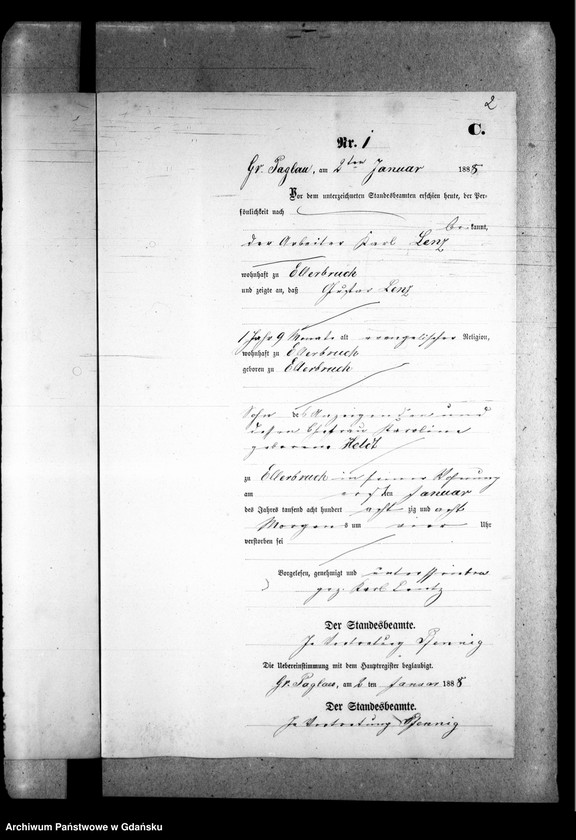 2
C.
Nr. 1
Gr. Paglau, am 2ten Januar 1888
Vor dem unterzeichneten Standesbeamten erschien heute, der Per-
sönlichkeit nach
be kannt,
der Arbeiter Karl Lenz
wohnhaft zu Ellerbruch
und zeigte an, daß Gustav Lenz
1 Jahr 9 Monate alt evangelischer Religion,
wohnhaft zu Ellerbruch
geboren zu Ellerbruch
Sohn des Anzeigenden und
dessen Ehefrau Karoline
geborene Heldt
zu Ellerbruch in seiner Wohnung
am ersten Januar
des Jahres tausend acht hundert achtzig und acht
Morgens um vier Uhr
verstorben sei
Vorgelesen, genehmigt und unterschrieben
gez. Karl Lentz
Der Standesbeamte.
In Vertretung Pfennig
Die Uebereinstimmung mit dem Hauptregister beglaubigt.
Gr. Paglau, am 2 ten Januar 1888
Der Standesbeamte.
In Vertretung Pfennig
Archiwum Państwowe w Gdańsku